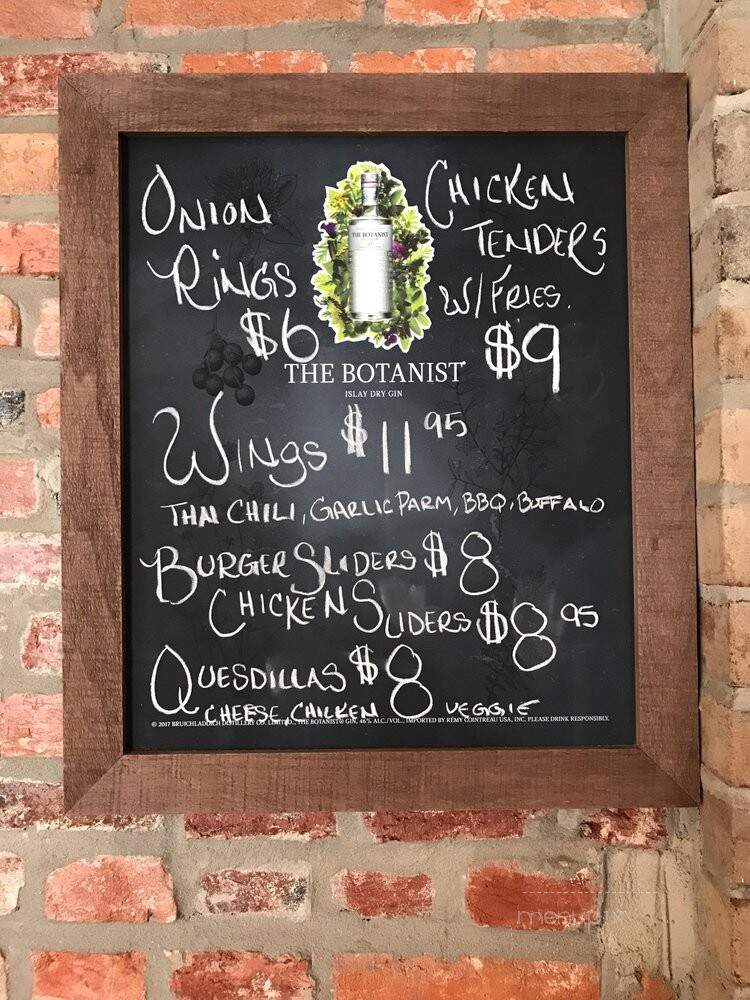 ONION
RINGS
$6
CHICKEN
TENDERS
W/FRIES.
$9
THE BOTANIST
THE BOTANIST
ISLAY DRY GIN
WINGS $11 95
THAI CHILI, GARLIC PARM, BBQ, BUFFALO
BURGER SLIDERS $8
CHICKEN SLIDERS $8 95
QUESDILLAS $8
CHEESE, CHICKEN VEGGIE
© 2017 BRUICHLADDICH DISTILLERY CO. LIMITED., THE BOTANIST® GIN, 46% ALC./VOL., IMPORTED BY RÉMY COINTREAU USA, INC. PLEASE DRINK RESPONSIBLY.
menupix